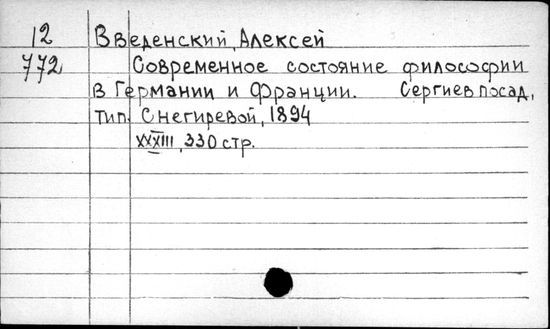 12 Введенский, Алексей
772 Современное состояние философии
в Германии и Франции. Сергиев посад,
тип. Снегиревой, 1894
XXXIII, 330 стр.